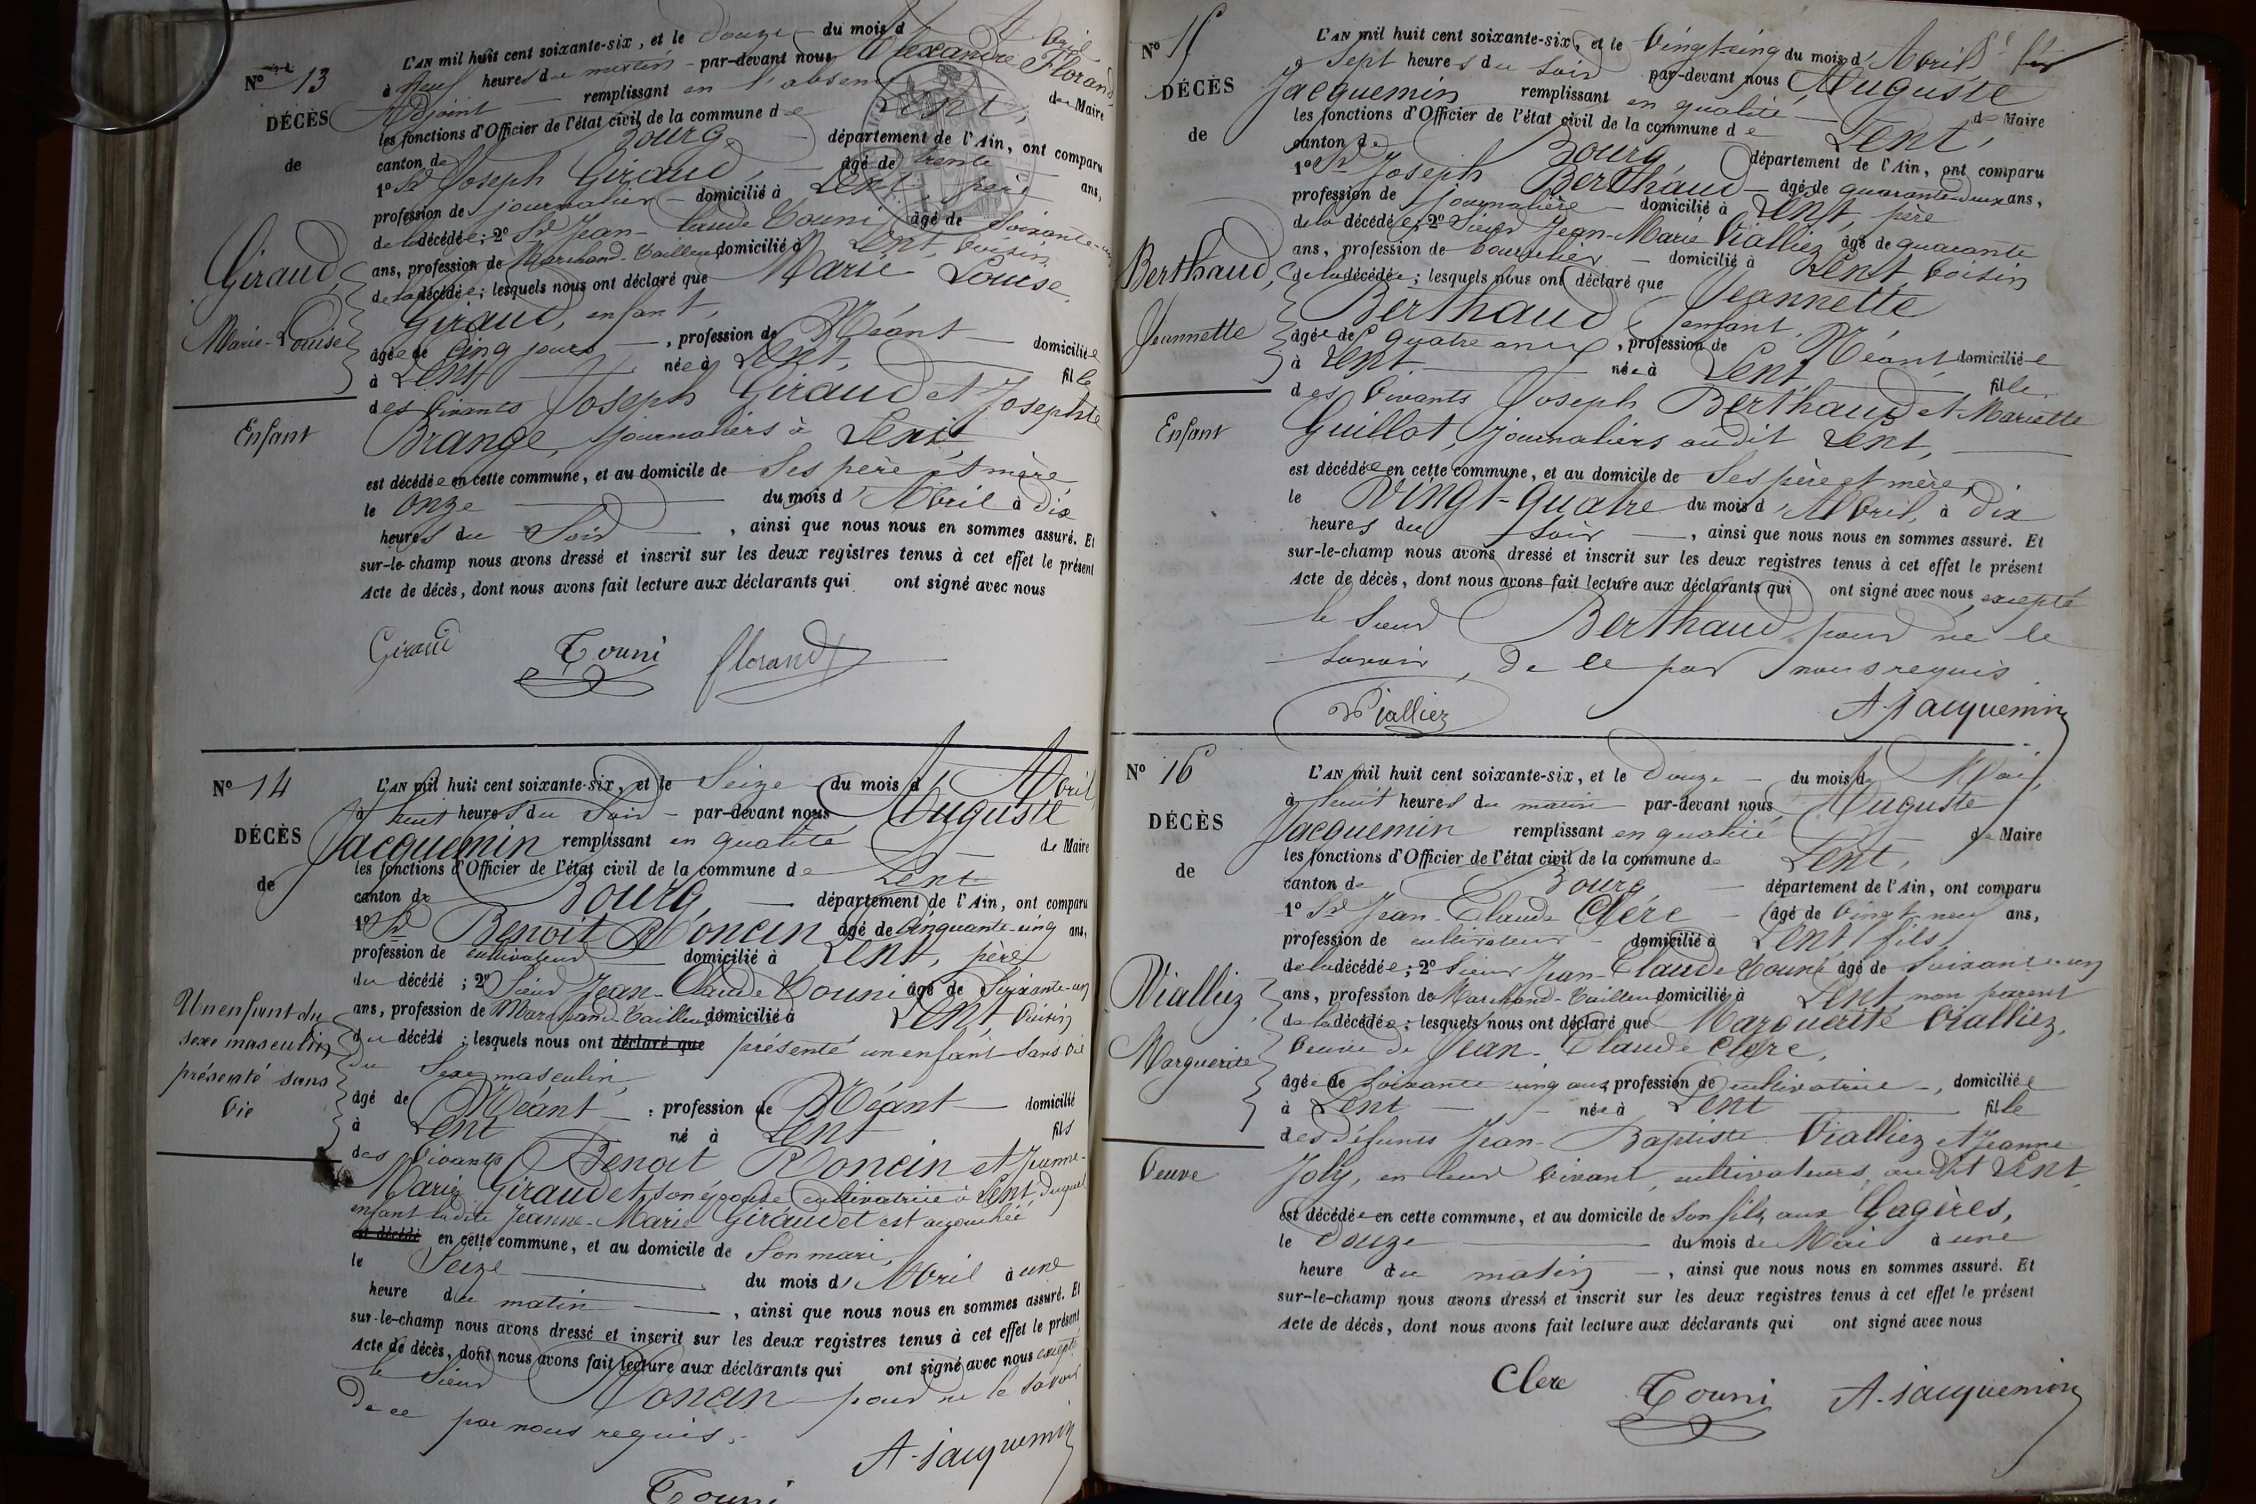 N° 13
DÉCÈS
de
Giraud,
Marie-Louise
Enfant
L'AN mil huit cent soixante-six, et le Douze du mois d'Avril
à Neuf heures du matin par-devant nous Alexandre Florand,
Adjoint remplissant en l'absence de Maire
les fonctions d'Officier de l'état civil de la commune de Lent,
canton de Bourg, département de l'Ain, ont comparu
1° Sr Joseph Giraud, âgé de trente ans,
profession de journalier domicilié à Lent, père
de la décédée; 2° Sr Jean-Claude Touni âgé de Soixante-un
ans, profession de Marchand-Tailleur domicilié à Lent, voisin
de la décédée; lesquels nous ont déclaré que Marie Louise
Giraud, enfant,
âgée de Cinq jours, profession de Néant domiciliée
à Lent née à Lent, fille
des vivants Joseph Giraud et Josephte
Brange, journaliers à Lent
est décédée en cette commune, et au domicile de Ses père et mère,
le Onze du mois d'Avril à Dix
heures du Soir, ainsi que nous nous en sommes assuré. Et
sur-le-champ nous avons dressé et inscrit sur les deux registres tenus à cet effet le présent
Acte de décès, dont nous avons fait lecture aux déclarants qui ont signé avec nous
Giraud Touni Florand
N° 14
DÉCÈS
de
Un enfant du
sexe masculin
présenté sans
vie
L'AN mil huit cent soixante-six, et le Seize du mois d'Avril,
à huit heures du Soir par-devant nous Auguste
Jacquemin remplissant en qualité de Maire
les fonctions d'Officier de l'état civil de la commune de Lent
canton de Bourg, département de l'Ain, ont comparu
1° Sr Benoit Roncin âgé de Cinquante-cinq ans,
profession de cultivateur domicilié à Lent, père
du décédé; 2° Sieur Jean-Claude Touni âgé de Soixante-un
ans, profession de Marchand-Tailleur domicilié à Lent, voisin
du décédé; lesquels nous ont déclaré que présenté un enfant sans vie
du Sexe masculin,
âgé de Néant, profession de Néant domicilié
à Lent né à Lent fils
des vivants Benoit Roncin et Jeanne-
Marie Giraudet, son épouse cultivatrice à Lent, duquel
enfant ladite Jeanne-Marie Giraudet est accouchée
est décédé en cette commune, et au domicile de Son mari,
le Seize du mois d'Avril à une
heure du matin, ainsi que nous nous en sommes assuré. Et
sur-le-champ nous avons dressé et inscrit sur les deux registres tenus à cet effet le présent
Acte de décès, dont nous avons fait lecture aux déclarants qui ont signé avec nous excepté
le Sieur Roncin pour ne le savoir
de ce par nous requis.
A. Jacquemin
Touni
N° 15
DÉCÈS
de
Berthaud,
Jeannette
Enfant
L'AN mil huit cent soixante-six, et le Vingt-cinq du mois d'Avril
à Sept heures du Soir par-devant nous Auguste
Jacquemin remplissant en qualité de Maire
les fonctions d'Officier de l'état civil de la commune de Lent,
canton de Bourg, département de l'Ain, ont comparu
1° Sr Joseph Berthaud âgé de quarante-deux ans,
profession de journalière domicilié à Lent, père
de la décédée; 2° Sieur Jean-Marie Vialliez âgé de quarante
ans, profession de bourrelier domicilié à Lent, voisin
de la décédée; lesquels nous ont déclaré que Jeannette
Berthaud, enfant,
âgée de quatre ans, profession de Néant domiciliée
à Lent née à Lent, fille
des vivants Joseph Berthaud et Mariette
Guillot, journaliers audit Lent,
est décédée en cette commune, et au domicile de Ses père et mère,
le Vingt-Quatre du mois d'Avril, à Dix
heures du Soir, ainsi que nous nous en sommes assuré. Et
sur-le-champ nous avons dressé et inscrit sur les deux registres tenus à cet effet le présent
Acte de décès, dont nous avons fait lecture aux déclarants qui ont signé avec nous excepté
le Sieur Berthaud pour ne le
savoir, de ce par nous requis
Vialliez A. Jacquemin
N° 16
DÉCÈS
de
Vialliez,
Marguerite
Veuve
L'AN mil huit cent soixante-six, et le Douze du mois de Mai,
à huit heures du matin par-devant nous Auguste
Jacquemin remplissant en qualité de Maire
les fonctions d'Officier de l'état civil de la commune de Lent,
canton de Bourg département de l'Ain, ont comparu
1° Sr Jean-Claude Clére âgé de Vingt-neuf ans,
profession de cultivateur domicilié à Lent fils
de la décédée; 2° Sieur Jean-Claude Touni âgé de Soixante-un
ans, profession de Marchand-Tailleur domicilié à Lent non parent
de la décédée; lesquels nous ont déclaré que Marguerite Vialliez,
Veuve de Jean-Claude Clere,
âgée de Soixante cinq ans, profession de cultivatrice, domiciliée
à Lent née à Lent fille
des défunts Jean-Baptiste Vialliez et Jeanne
Joly, en leur vivant, cultivateurs, audit Lent,
est décédée en cette commune, et au domicile de Son fils, aux Gagères,
le Douze du mois de Mai à une
heure du matin, ainsi que nous nous en sommes assuré. Et
sur-le-champ nous avons dressé et inscrit sur les deux registres tenus à cet effet le présent
Acte de décès, dont nous avons fait lecture aux déclarants qui ont signé avec nous
Clere Touni A. Jacquemin